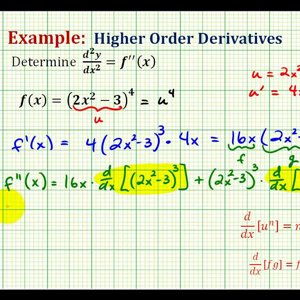 Example: Higher Order Derivatives
Determine d²y/dx² = f''(x)
u = 2x²
f(x) = (2x² − 3)⁴ = u⁴
u' = 4
u
f'(x) = 4(2x²−3)³ · 4x = 16x(2x²
f g
f''(x) = 16x · d/dx [(2x²−3)³] + (2x²−3)³ · d/dx [
=
d/dx [uⁿ] = n
d/dx [fg] = f